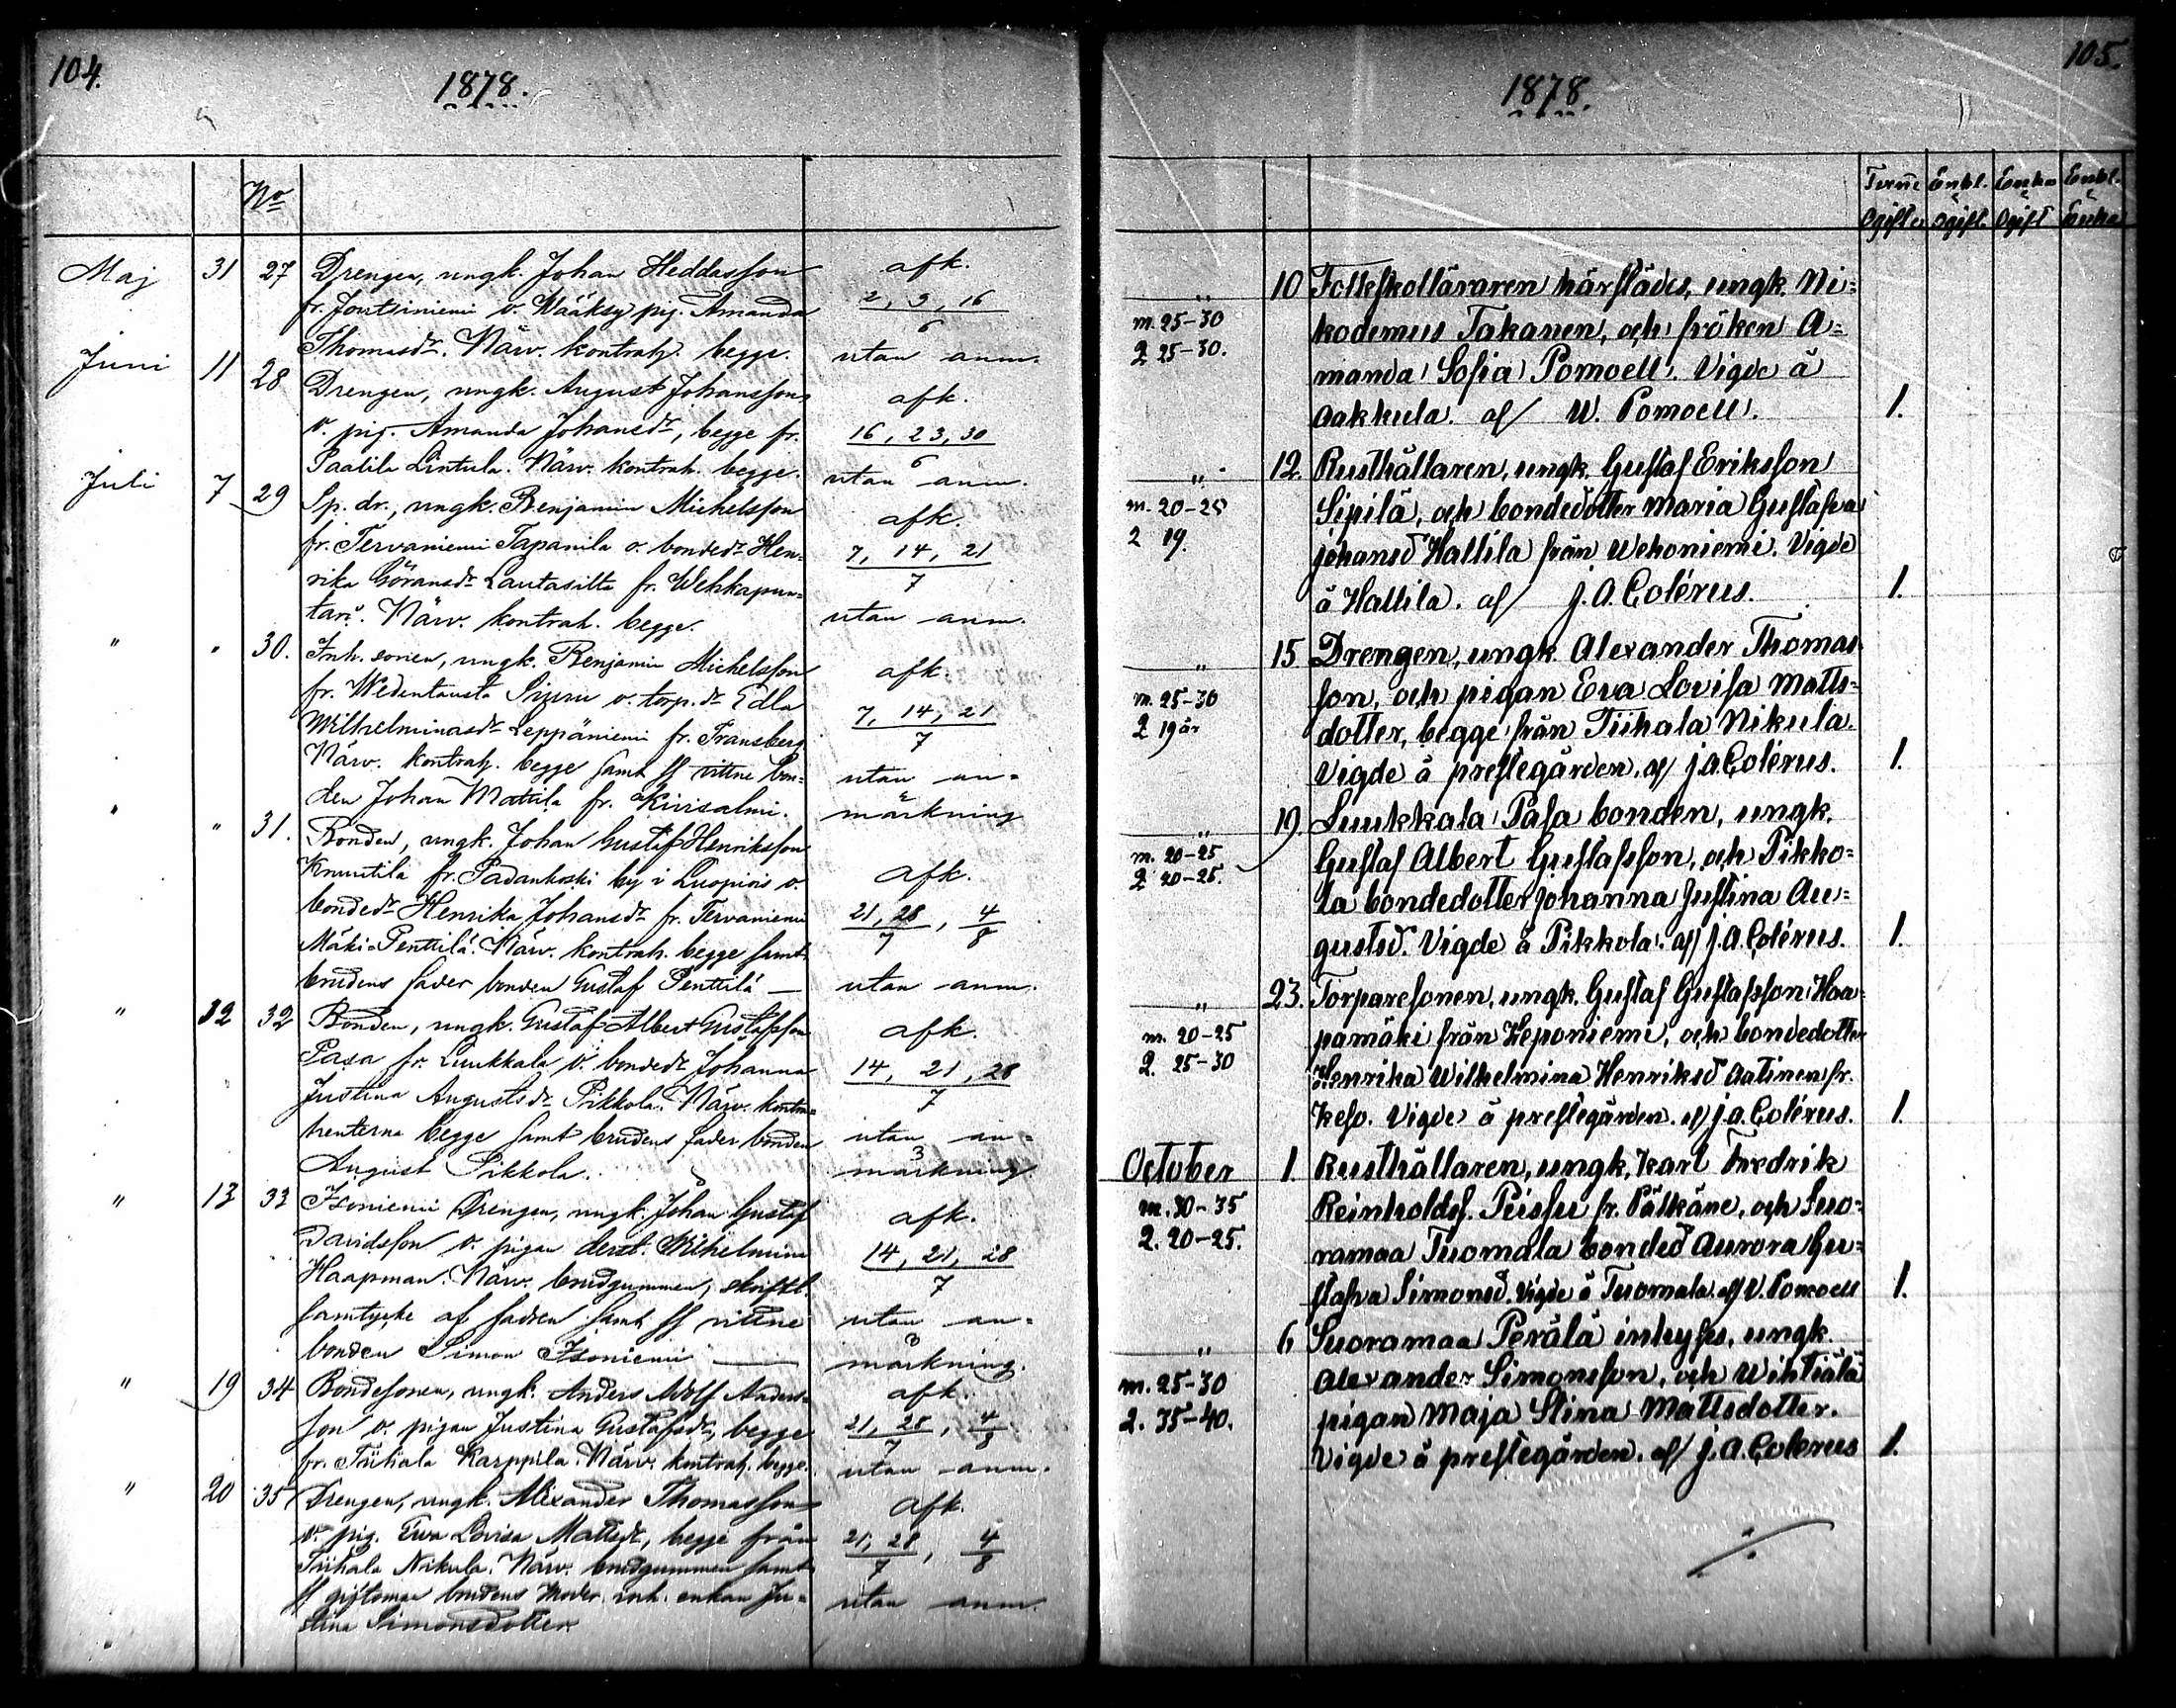 104.
1878.
No
Maj 31 27 Drengen, ungk. Johan Heddasson afk.
fr. Jontsiniemi o. Wääksy pig. Amanda 2, 9, 16
6
Thomasdr. Närv. kontrah. begge. utan anm.
Juni 11 28 Drengen, ungk. August Johansson afk.
o. pig. Amanda Johansdr, begge fr. 16, 23, 30
6
Paalila Lintula. Närv. kontrah. begge. utan anm.
Juli 7 29 Sp. dr., ungk. Benjamin Michelsson afk.
fr. Tervaniemi Tapanila o. bondedr Hen- 7, 14, 21
7
rika Göransdr Lautasilta fr. Wehkapun-
tari. Närv. kontrah. begge. utan anm.
" " 30. Inh. sonen, ungk. Benjamin Michelsson afk
fr. Wedentausta o. torp. dr Edla 7, 14, 21
7
Wilhelminasdr Leppäniemi fr. Fransberg
Närv. kontrah. begge samt ss vittne bon- utan an-
den Johan Mattila fr. Kivisalmi. märkning
" " 31. Bonden, ungk. Johan Gustaf Henriksson
Knuutila fr. Padankoski by i Luopiois o. afk.
bondedr Henrika Johansdr fr. Tervaniemi 21, 28, 4
7 8
Mäki-Penttilä. Närv. kontrah. begge samt
brudens fader bonden Gustaf Penttilä — utan anm.
" 12 32 Bonden, ungk. Gustaf Albert Gustafsson afk.
Pasa fr. Luukkala o. bondedr Johanna 14, 21, 28
7
Justina Augustsdr Pikkola. Närv. kontra-
henterna begge samt brudens fader bonden utan an-
August Pikkola. märkning.
" 13 33 Isoniemi Drengen, ungk. Johan Gustaf afk.
Davidsson o. pigan derst. Wilhelmina 14, 21, 28
7
Haapman. Närv. brudgummen, skriftl.
samtycke af fadren samt ss vittne utan an-
bonden Simon Isoniemi — märkning.
" 19 34 Bondesonen, ungk. Anders Adolf Anders- afk.
son o. pigan Justina Gustafsdr, begge 21, 28, 4
7 8
fr. Tiihala Karppila. Närv. kontrah. begge. utan anm.
" 20 35 Drengen, ungk. Alexander Thomasson afk.
o. pig. Ewa Lovisa Mattsdr, begge från 21, 28, 4
7 8
Tiihala Nikula. Närv. brudgummen samt
ss giftoman brudens moder, inh. enkan Ju- utan anm.
stina Simonsdotter.
105.
1878.
Tvenne Ogifta Enkl. o Ogift. Enka o Ogift Enkl. o Enka
" 10 Folkskolläraren härstädes, ungk. Ni-
m. 25-30 kodemus Takanen, och fröken A-
q 25-30. manda Sofia Pomoell. Vigde å
Aakkula. af W. Pomoell. 1.
" 12. Rusthållaren, ungk. Gustaf Eriksson
m. 20-25 Sipilä, och bondedotter Maria Gustafva
q 19. Johansd Hallila från Wehoniemi. Vigde
å Hallila. af J. A. Colérus. 1.
" 15 Drengen, ungk. Alexander Thomas-
m. 25-30 son, och pigan Eva Lovisa Matts-
q 19 år dotter, begge från Tiihala Nikula.
Vigde å prestegården. af J. A. Colérus. 1.
" 19 Luukkala Pasa bonden, ungk.
m. 20-25 Gustaf Albert Gustafsson, och Pikko-
q 20-25. la bondedotter Johanna Justina Au-
gustsd. Vigde å Pikkola. af J. A. Colérus. 1.
" 23. Torparesonen, ungk. Gustaf Gustafsson Haa-
m. 20-25 pamäki från Heponiemi, och bondedotter
q. 25-30 Henrika Wilhelmina Henriksd Aatinen fr.
Keso. Vigde å prestegården. af J. A. Colérus. 1.
October 1. Rusthållaren, ungk. Karl Fredrik
m. 30-35 Reinholdss. Peissu fr. Pälkäne, och Suo-
q. 20-25. ramaa Tuomala bonded Aurora Gu-
stafva Simonsd. Vigde å Tuomala. af W. Pomoell 1.
" 6 Suoramaa Perälä inhyses, ungk.
m. 25-30 Alexander Simonsson, och Wihtiälä
q. 35-40. pigan Maja Stina Mattsdotter.
Vigde å prestegården. af J. A. Colerus 1.